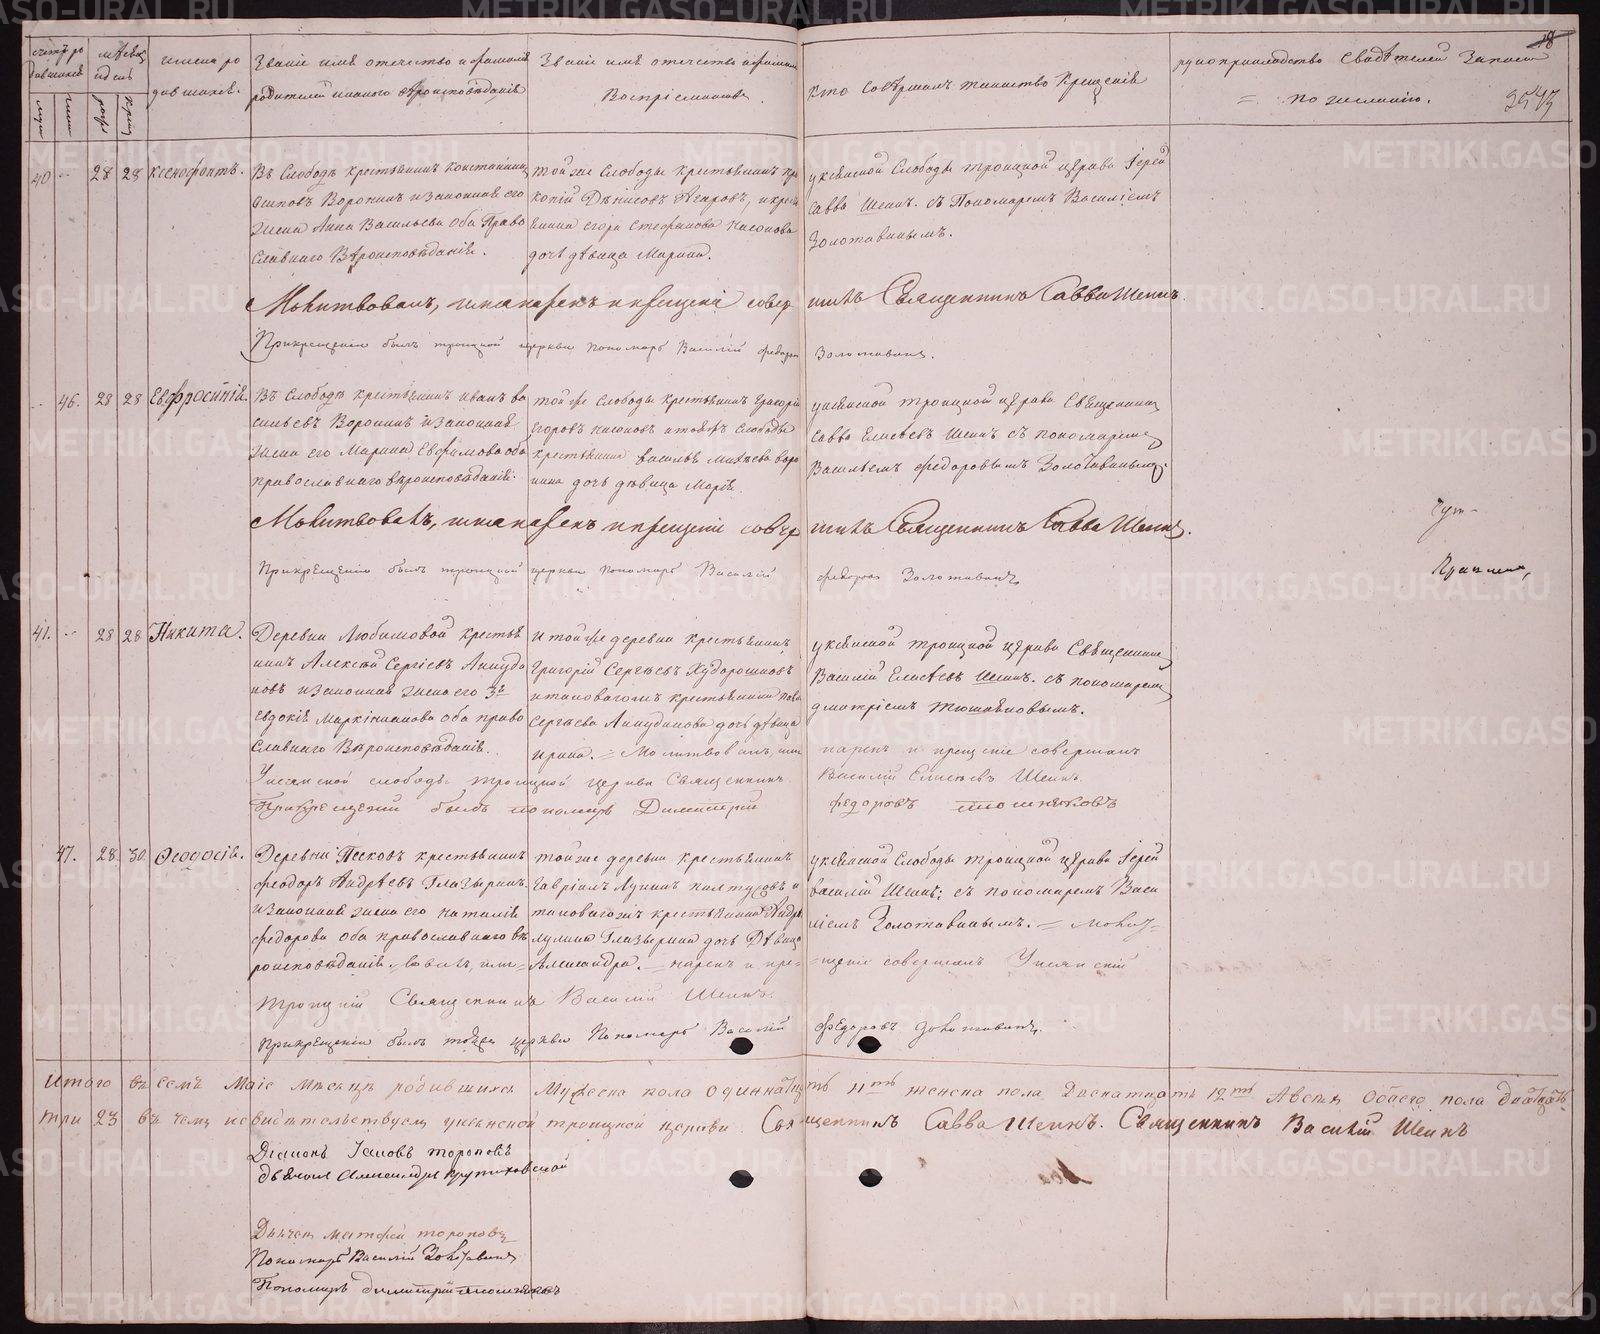 Счетъ ро
дившихся
мѣсяцъ
и день
имена ро
дившихся.
Званіе имя отечество и фамилія
родителей и какого вѣроисповѣданія
Званіе имя отечество и фамилія
Воспріемниковъ
кто совершалъ таинство крещенія
рукоприкладство свидѣтелей записи
= по желанію.
18
40 28 28 Ксенофонтъ.
Въ Слободѣ крестьянинъ Константинъ
Осиповъ Воронинъ и законная его
жена Анна Васильева оба Право
славнаго Вѣроисповѣданія.
той же Слободы крестьянинъ про
копій Денисовъ Агаровъ, и кресть
янина егора Стефанова Насонова
дочь дѣвица Марина.
укѣянской Слободы троицкой церкви Іерей
Савва Шеинъ. съ Пономаремъ Василіемъ
Золотавинымъ.
Молитвовалъ, имя нарекъ и крещеніе совер шилъ Священникъ Савва Шеинъ.
При крещеніи былъ троицкой церкви пономарь Василій федоровъ Золотавинъ.
46. 28 28 Евфросинія.
Въ Слободѣ крестьянинъ иванъ ва
сильевъ Воронинъ и законная
жена его Марина Евфимова оба
православнаго вѣроисповѣданія.
той же Слободы крестьянинъ Григорій
Егоровъ насоновъ и той же Слободы
крестьянина василья михѣева воро
нина дочь дѣвица Марія.
укѣянской троицкой церкви Священникъ
Савва Елисѣевъ Шеинъ съ пономаремъ
Васильемъ федоровымъ Золотавинымъ.
Молитвовалъ, имя нарекъ и крещеніе совер шилъ Священникъ Савва Шеинъ.
При крещеніи былъ троицкой церкви пономарь Василій федоровъ Золотавинъ
41. 28 28 Никита.
Деревни Любимовой крестья
нинъ Алексѣй Сергіевъ Анкуди
новъ и законная жена его 3я
Евдокія Маркіянанова оба право
славнаго Вѣроисповѣданія.
и той же деревни крестьянинъ
Григорій Сергѣевъ Худорошковъ
и таковагожъ крестьянина
Сергѣева Анкудинова дочь дѣвица
ирина. = Молитвовалъ, имя
укѣянской троицкой церкви Священникъ
Василій Елисѣевъ Шеинъ. съ пономаремъ
дмитріемъ тюшняковымъ.
нарекъ и крещеніе совершалъ
Укѣянской слободы троицкой церкви Священникъ Василій Елисѣевъ Шеинъ.
При крещеніи былъ пономарь Димитрій федоровъ тюшняковъ
47. 28 30 Ѳеодосія.
Деревни Песковъ крестьянинъ
феодоръ Андрѣевъ Глазыринъ
и законная жена его наталія
федорова оба православнаго вѣ
роисповѣданія.
той же деревни крестьянинъ
Гавріилъ Лукинъ колтусовъ и
таковагожъ крестьянина Андрея
лукина Глазырина дочь Дѣвица
Александра. = нарекъ и кре=
укѣянской Слободы троицкой церкви Іерей
василій Шеинъ; съ пономаремъ Васи
ліемъ Золотавинымъ. =
=щеніе совершалъ Укѣянскій
троицкій Священникъ Василій Шеинъ.
При крещеніи былъ тойже церкви Пономарь Василій федоровъ Золотавинъ.
Итого въ семъ Маіе Месяцѣ родившихся Мужеска пола одиннатцать 11ть женска пола Двенатцать 12ть А всехъ Обоего пола двадцать
три 23 въ чемъ и свидѣтельствуемъ укѣянской троицкой церкви Священникъ Савва Шеинъ. Священникъ Василій Шеинъ
Діаконъ Іаковъ тороповъ
дьячокъ Александръ Крутиховской
Дьячекъ Матфей тороповъ
Пономарь Василій Золотавинъ
Пономарь димитрій тюшняковъ